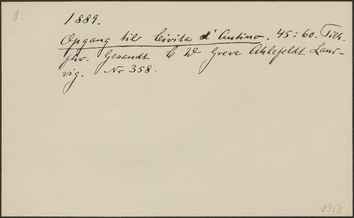 1889.
Opgang til Civita d'Antino. 45:60. Tilh.
fhv. Gesandt C W Greve Ahlefeldt Laur-
vig. Nr 358.